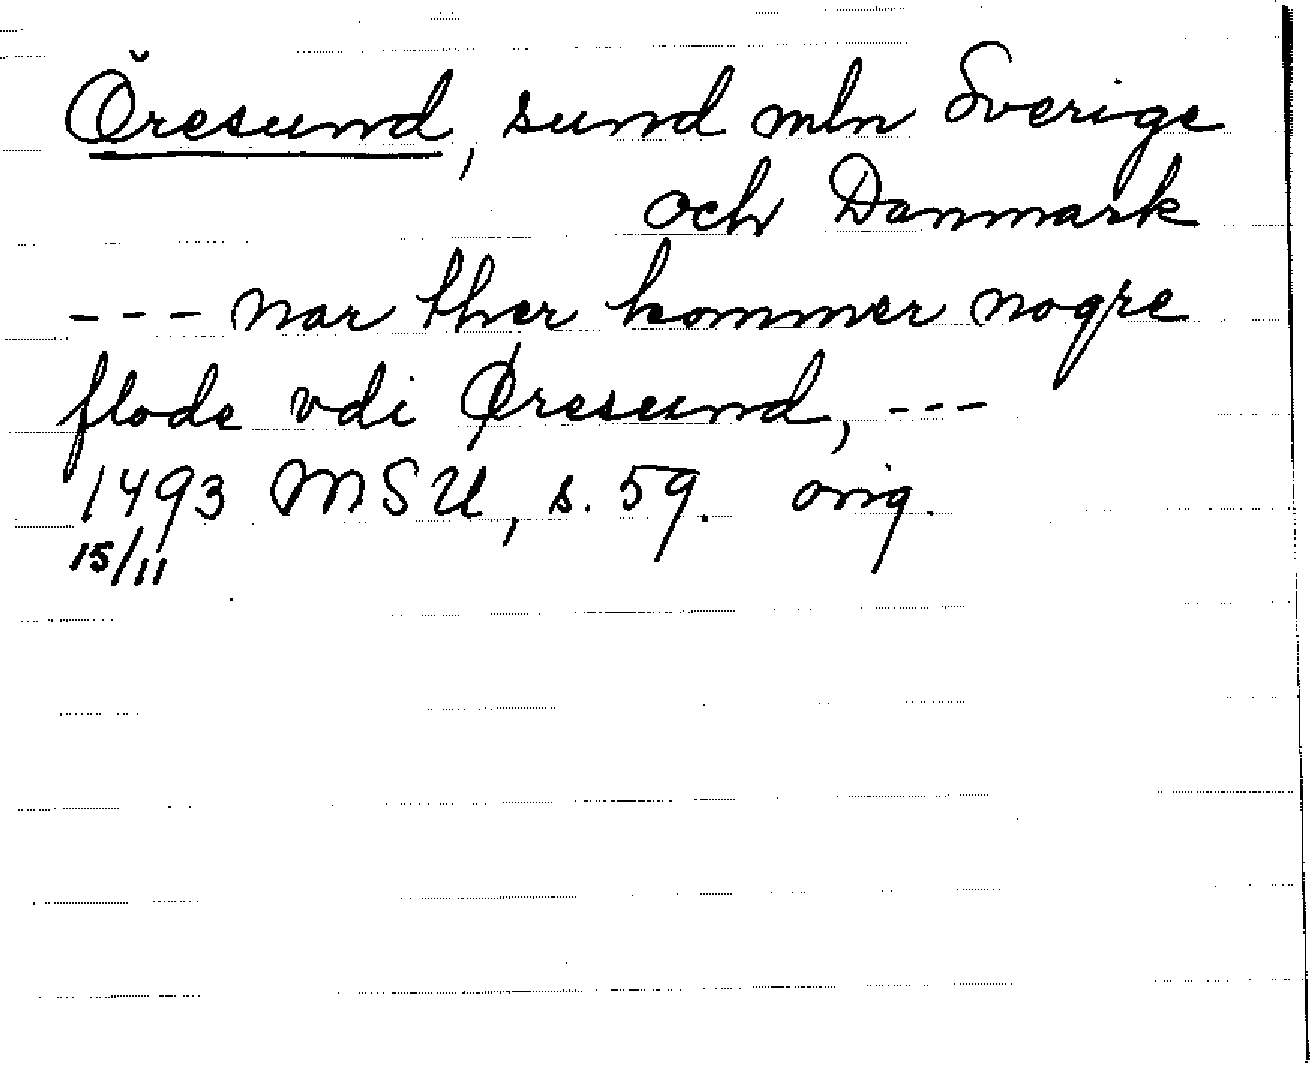 Öresund, sund mln Sverige
och Danmark
--- nar ther kommer nogre
flode vdi Øresund, ---
1493 MSU, s. 59. orig.
15/11